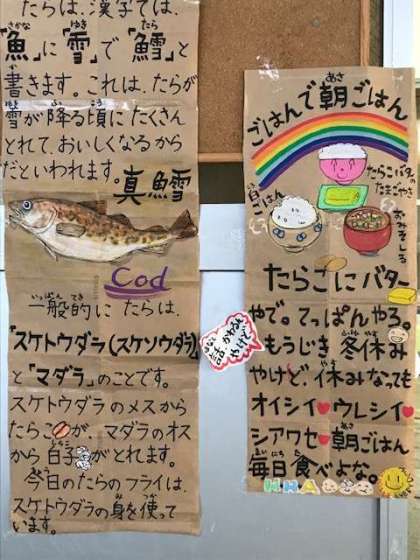 たらは、漢字では、
「魚」に「雪」で「鱈」と
書きます。これは、たらが
雪が降る頃にたくさん
とれて、おいしくなるから
だといわれます。
真鱈
Cod
一般的にたらは、
「スケトウダラ(スケソウダラ)」
と「マダラ」のことです。
スケトウダラのメスから
たらこが、マダラのオス
から白子がとれます。
今日のたらのフライは、
スケトウダラの身を使って
います。
話、かわるん
やけど
ごはんで朝ごはん
たらこバターの
たまごやき
白ごはん
おみそしる
たらこにバター
やで。てっぱんやろ。
もうじき冬休み
やけど、休みなっても
オイシイ♥ウレシイ♥
シアワセ♥朝ごはん
毎日食べよな。